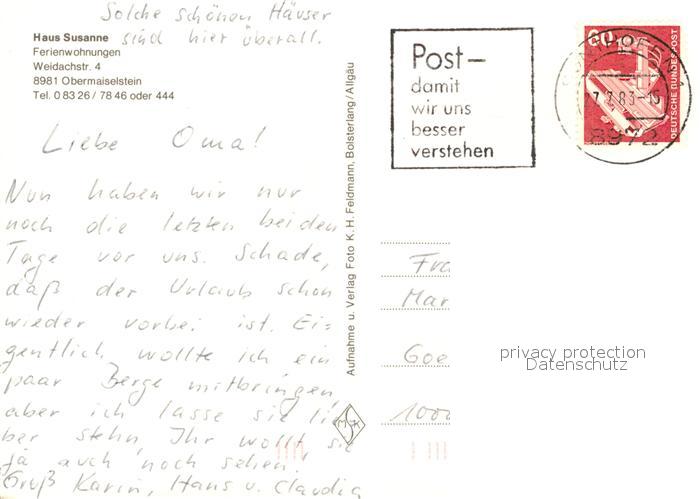 Solche schönen Häuser
sind hier überall.
Haus Susanne
Ferienwohnungen
Weidachstr. 4
8981 Obermaiselstein
Tel. 0 83 26 / 78 46 oder 444
Liebe Oma!
Nun haben wir nur
noch die letzten beiden
Tage vor uns. Schade,
daß der Urlaub schon
wieder vorbei ist. Ei=
gentlich wollte ich ein
paar Berge mitbringen
aber ich lasse sie li=
ber stehn, Ihr wollt sie
ja auch noch sehen!
Gruß Karin, Hans u. Claudia
Aufnahme u. Verlag Foto K. H. Feldmann, Bolsterlang/Allgäu
Post-
damit
wir uns
besser
verstehen
60
DEUTSCHE BUNDESPOST
8972
Fra
Mar
Goe
1000
privacy protection
Datenschutz